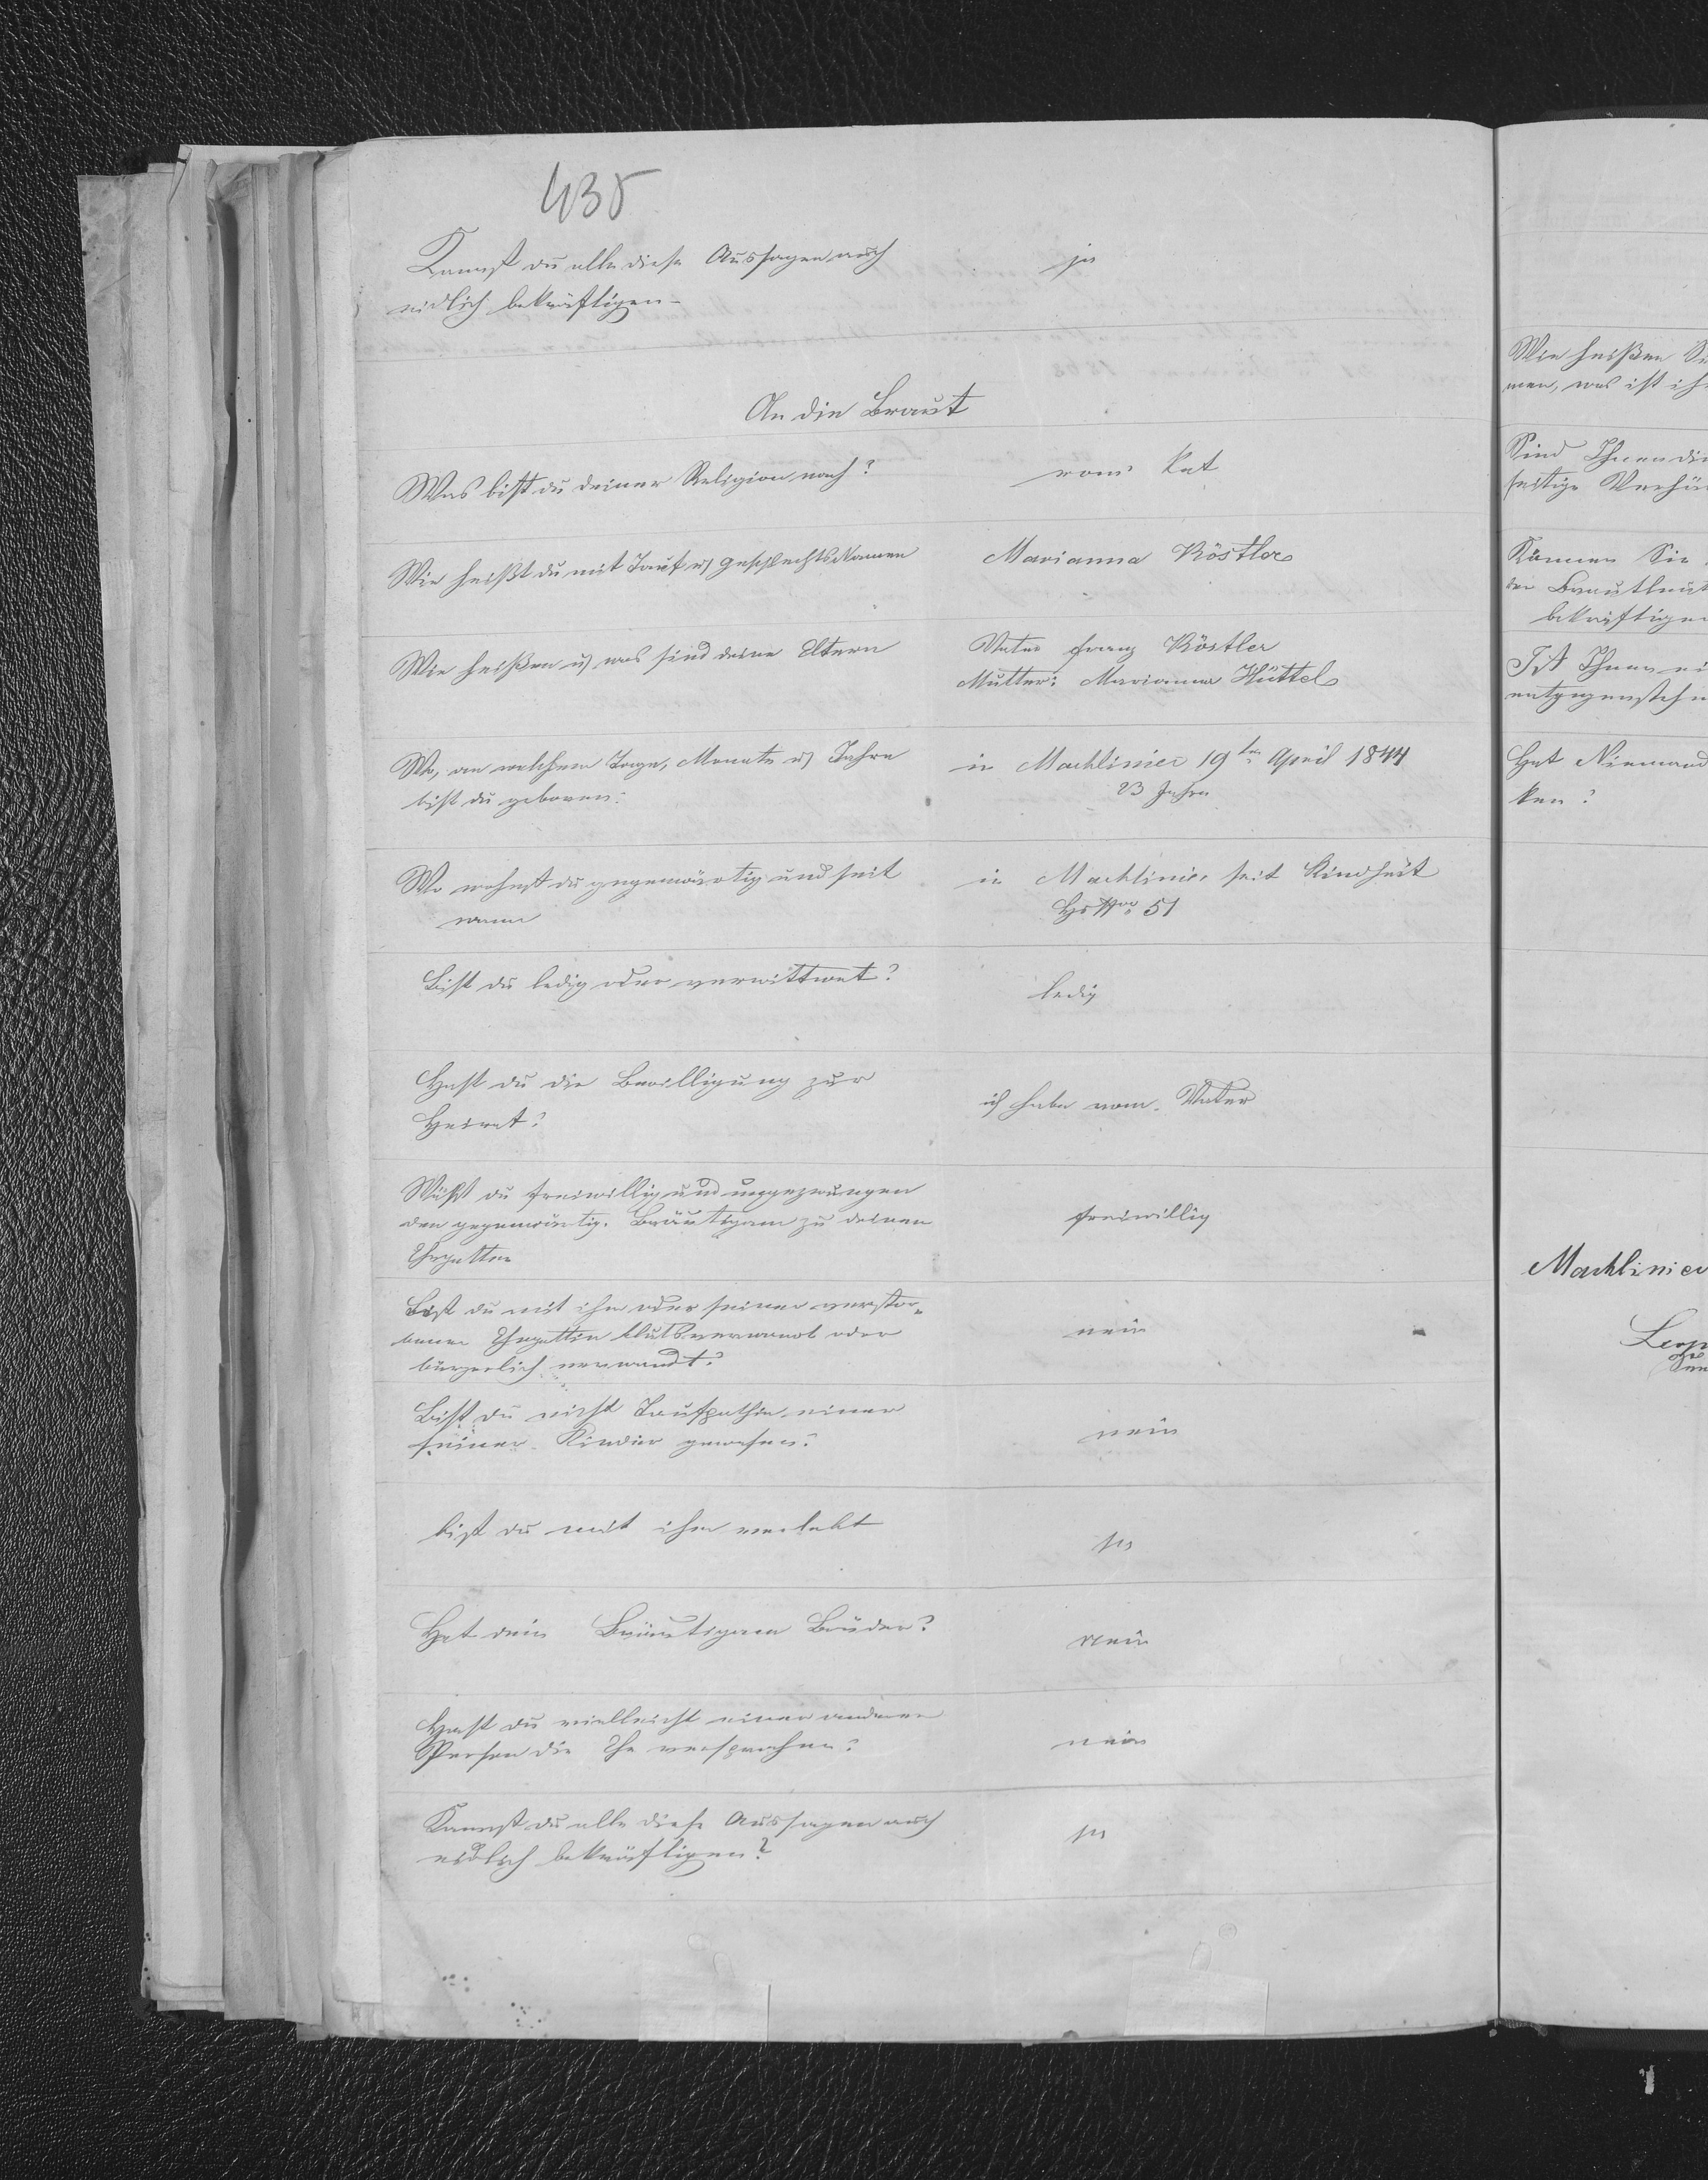 435
Kannst du alle diese Aussagen auch
eidlich bekräftigen -
ja
An die Braut
Was bist du deiner Religion nach?
rom: kat
Wie heißt du mit Tauf u. Geschlechts Namen
Marianna Röstler
Wie heißen u. was sind deine Eltern
Vater Franz Röstler
Mutter: Marianna Hüttel
Wo, an welchem Tage, Monate u. Jahre
bist du geboren:
in Machliniec 19ten April 1844
23 Jahre
Wo wohnst du gegenwärtig und seit
wann
in Machliniec seit Kindheit
Hs Nro 51
Bist du ledig oder verwittwet?
ledig
Hast du die Bewilligung zur
Heirat?
ich habe vom Vater
Wählst du freiwillig und ungezwungen
den gegenwärtig. Bräutigam zu deinen
Ehegatten
freiwillig
Bist du mit ihm oder seiner verstor„
benen Ehegattin blutsverwandt oder
bürgerlich verwandt?
nein
Bist du nicht Taufpathin einer
seiner Kinder gewesen?
nein
bist du mit ihm verlobt
ja
Hat dein Bräutigam Brüder?
nein
Hast du vielleicht einer anderen
Person die Ehe versprochen?
nein
Kannst du alle diese Aussagen auch
eidlich bekräftigen?
ja
Wie heißen
men, was ist
Sind Ihnen
seitige
Können Sie
der
Ist Ihnen
Hat Niemand
ken?
Machliniec
Leop